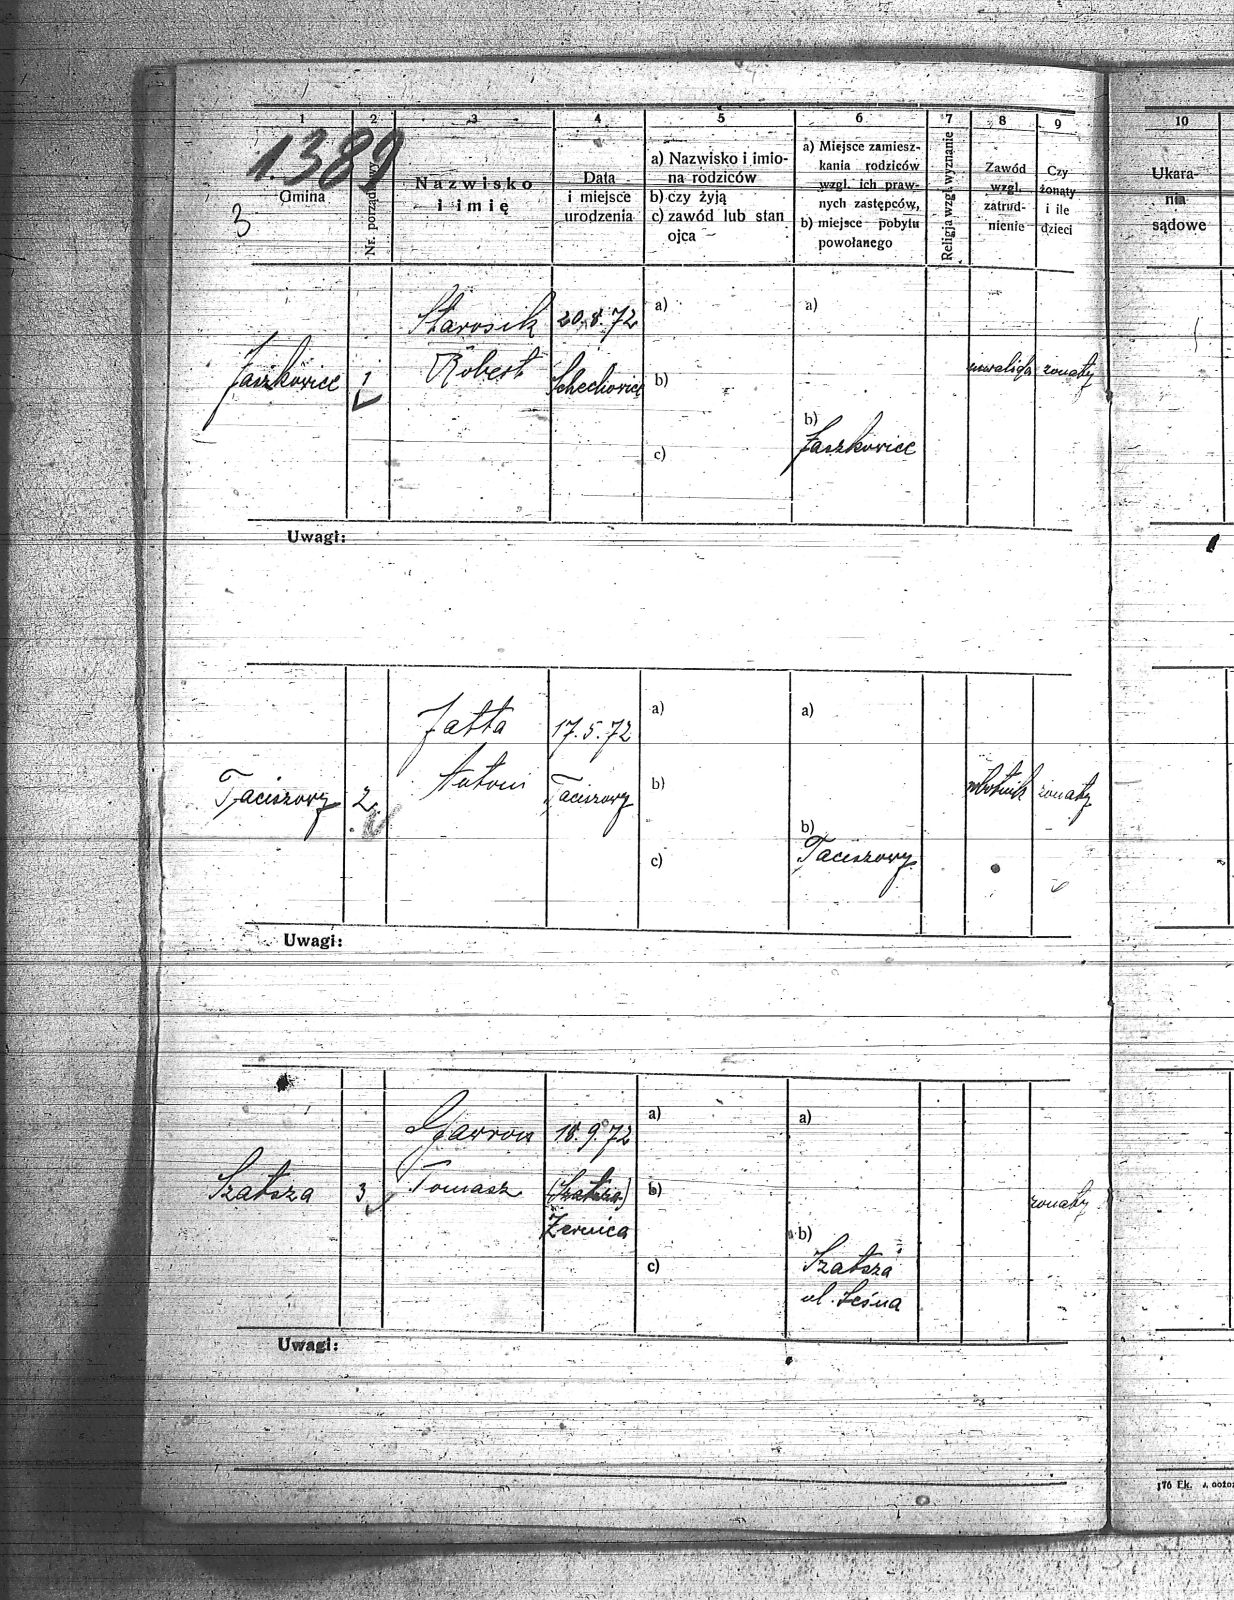 1 2 3 4 5 6 7 8 9 10
1.389
3
Gmina
Nr. porządkowy
Nazwisko
i imię
Data
i miejsce
urodzenia
a) Nazwisko i imio-
na rodziców
b) czy żyją
c) zawód lub stan
ojca
a) Miejsce zamiesz-
kania rodziców
wzgl. ich praw-
nych zastępców,
b) miejsce pobytu
powołanego
Religja wzgl. wyznanie
Zawód
wzgl.
zatrud-
nienie
Czy
żonaty
i ile
dzieci
Ukara-
nia
sądowe
Jaszkowice
1
Starosik
Robert
20.8.72
Schechowice
a)
b)
c)
a)
b)
Jaszkowice
inwalida
żonaty
Uwagi:
Taciszowy
2.
Jatta
Antoni
17.5.72
Taciszowy
a)
b)
c)
a)
b)
Taciszowy
żonaty
Uwagi:
Szałsza
3
Gawron
Tomasz
18.9.72
(Szałsza)
Żernica
a)
b)
c)
a)
b)
Szałsza
ul. Leśna
żonaty
Uwagi: